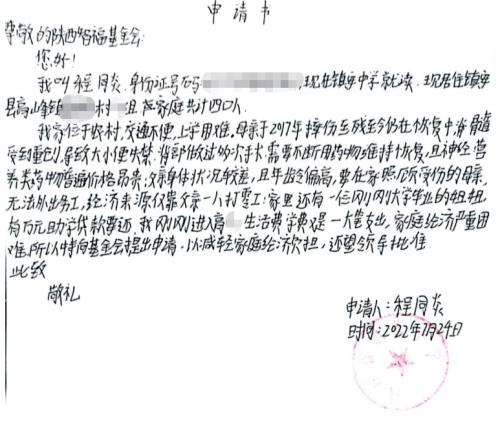 申请书
尊敬的陕西妇福基金会:
您好!
我叫程同炎,身份证号码,现在镇安中学就读.现居住镇安
县高峰镇村组,在家庭共计四口人.
我家位于农村,交通不便,上学困难.母亲于2017年摔伤至残至今仍在恢复中,脊髓
受到重创,导致大小便失禁,背部做过的次手术,需要不断用药物维持恢复,且神经营
养类药物普遍价格昂贵;父亲身体状况较差,且年龄偏高,要在家照顾受伤的母亲,
无法外出务工,经济来源仅靠父亲一人打零工;家里还有一位刚刚大学毕业的姐姐,
有万元助学贷款要还,我刚刚进入高生活费学费又是一大笔支出,家庭经济严重困
难,所以特向基金会提出申请.以减轻家庭经济负担,还望领导批准
此致
敬礼
申请人:程同炎
时间:2022年7月24日